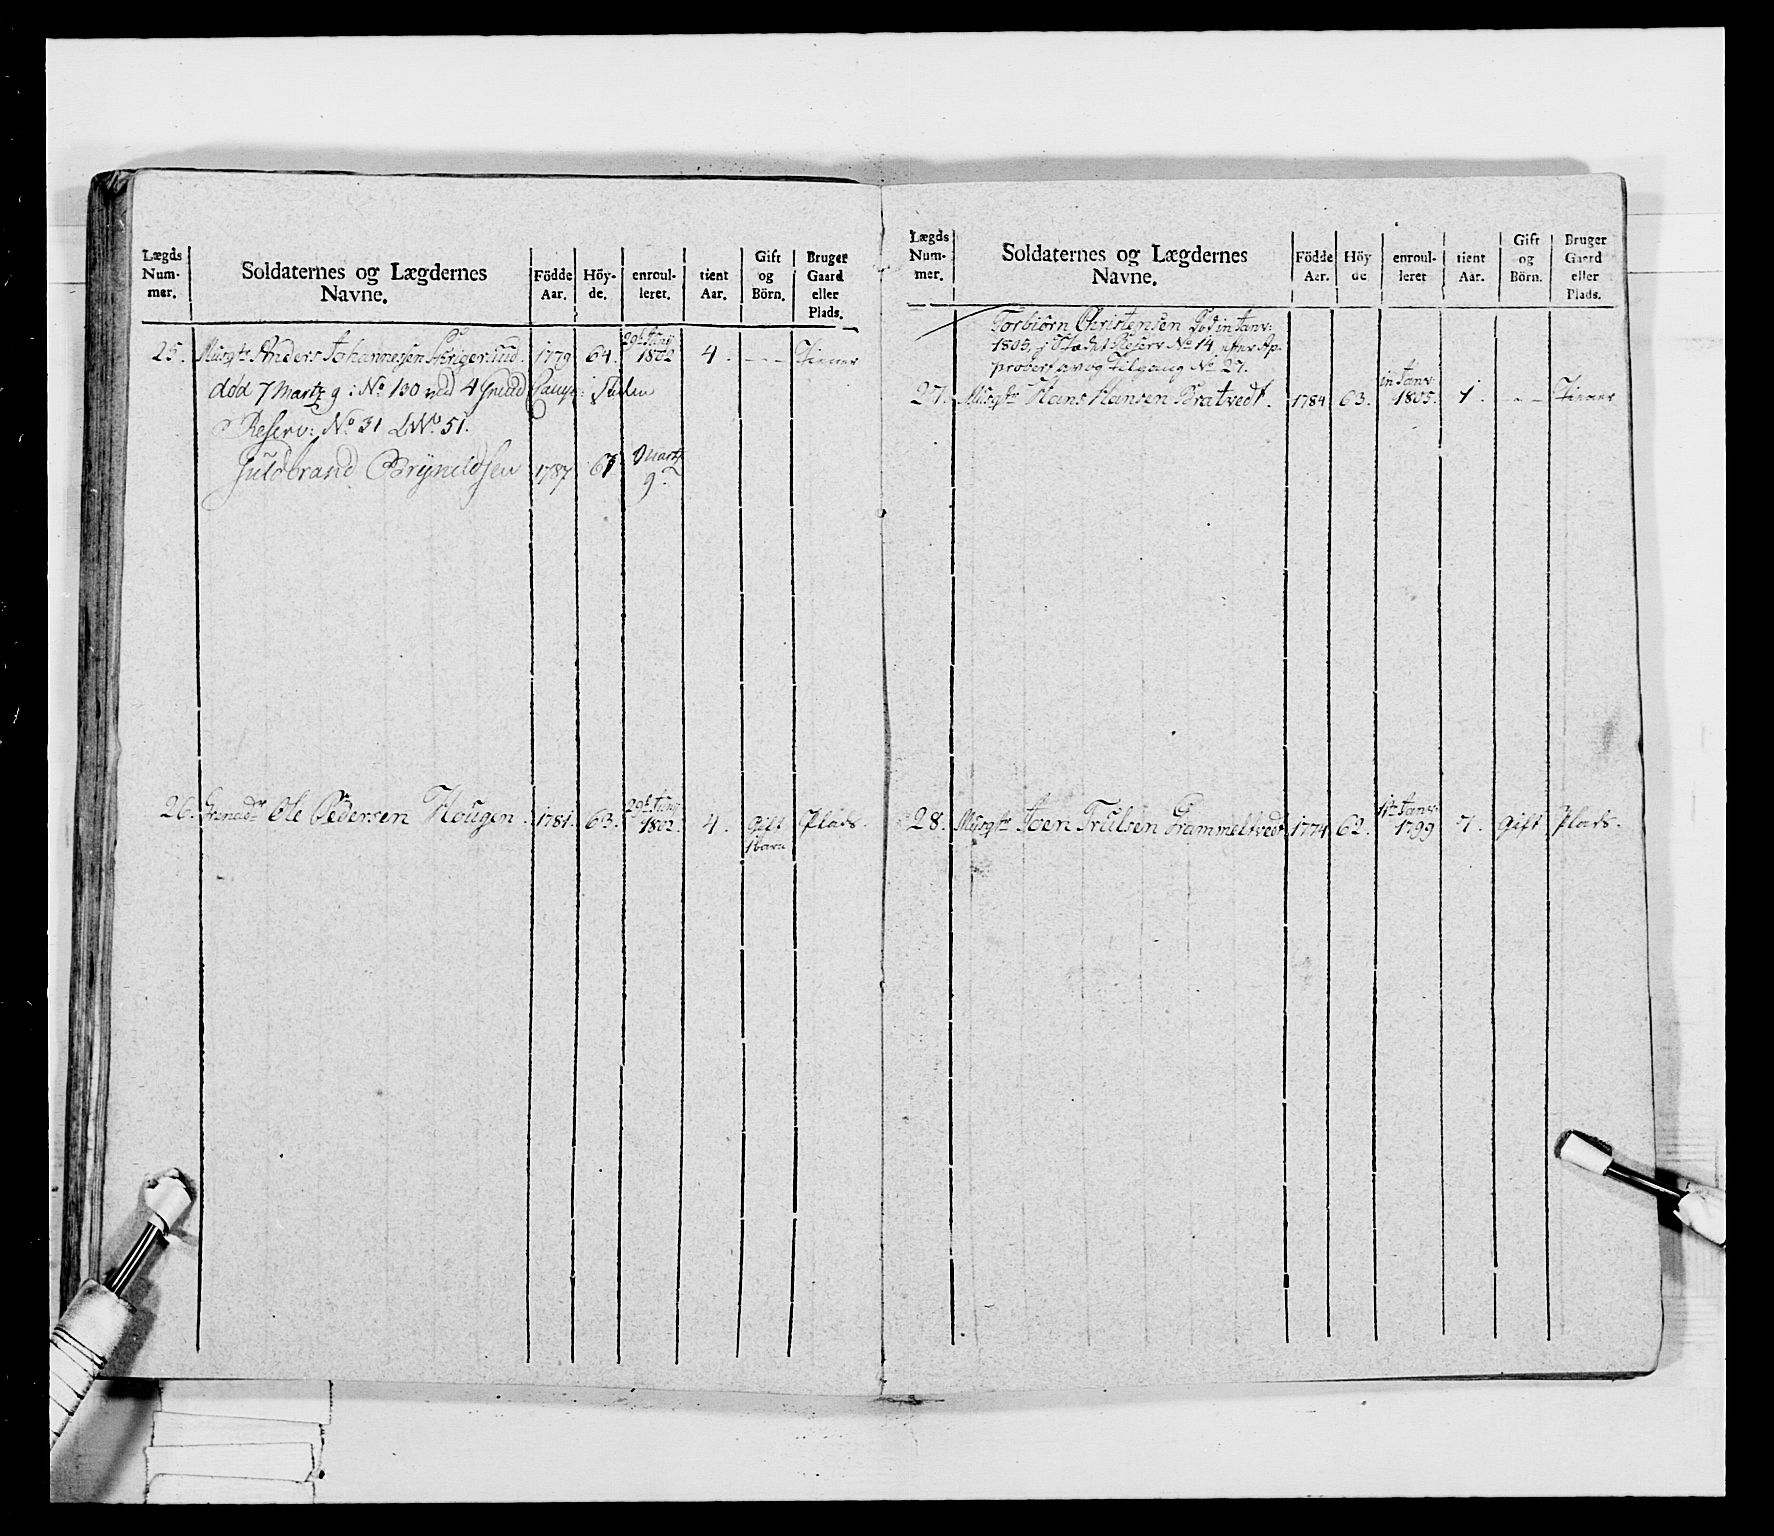 Lægds Num- mer.
Soldaternes og Lægdernes Navne.
Födde Aar.
Höy- de.
enroul- leret.
tient Aar.
Gift og Börn.
Bruger Gaard eller Plads.
25. Musqtr Anders Johannesen 1779 64. 29t Junij 1802 4. - - - Tiener
død 7 Martz 9 : No 130 ved 4
Reserv: No 31 LNo 51.
Juldbrand Brÿnildsen 1787 61 Martz 9
26. Grenadr Ole Pedersen Hougen. 1781. 63. 29t Junij 1802. 4. Gift 1 barn Plads.
Lægds Num- mer.
Soldaternes og Lægdernes Navne.
Födde Aar.
Höy de
enroul- leret
tient Aar.
Gift og Börn.
Bruger Gaard eller Plads.
Torbiörn Christensen Død in Janv:
1805, i Stædet Reserv No 14 efter Ap-
probert av og Tilgang No 27.
27. Musqtr Hans Hansen Bratvedt. 1784 63. in Janv: 1805. 1. - - - Tiener
28. Musqtr Joen Trulsen Grammeltvedt 1774 62. 1te Janv: 1799 7. Gift Plads.